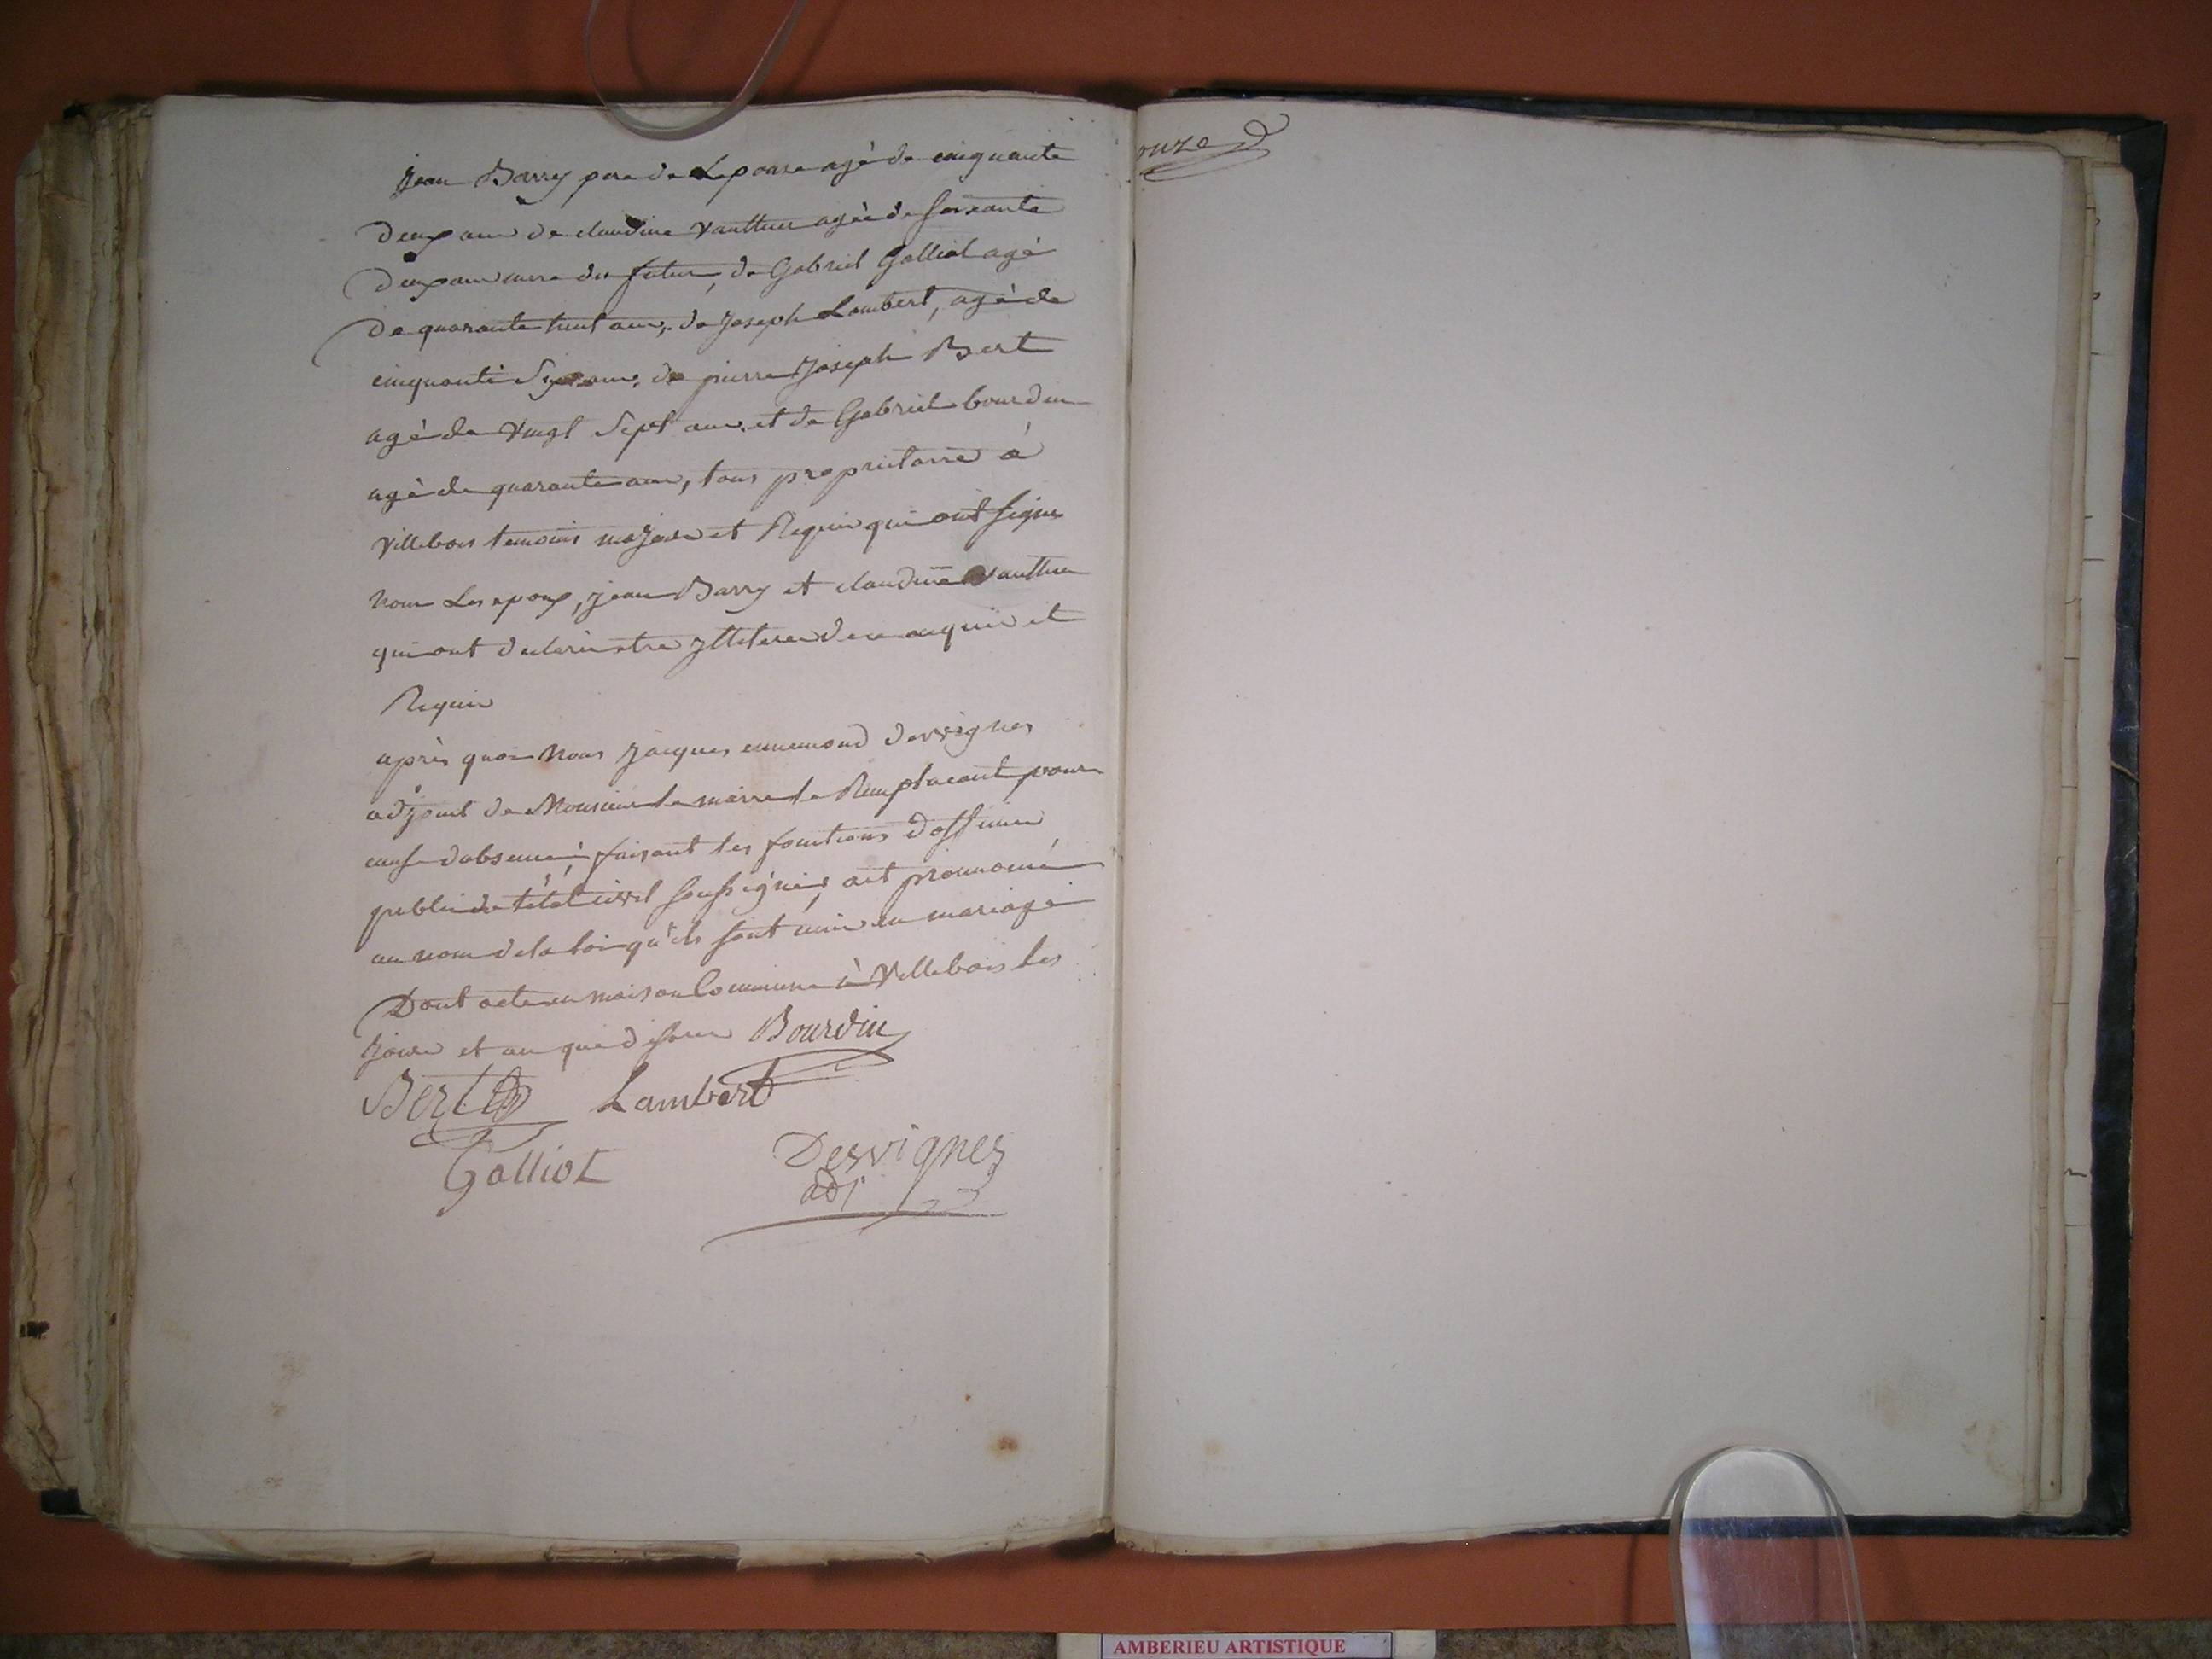 jean Barry pere de Lepouse agé de cinquante
deux ans de claudine Vautthier agée de soixante
deux ans mere du futur, de Gabriel Galliot agé
de quarante huit ans, de Joseph Lambert, agé de
cinquante six ans, de pierre Joseph Bert
agé de vingt sept ans, et de Gabriel bourdin
agé de quarante ans, tous propriétaire à
villebois temoins majeurs et Requis qui ont signé
non Les epoux, jean Barry et claudine Vautthier
qui ont declaré etre jlleteré de ce anquis et
Requis
après quoi Nous Jacques ennemond desvignes
adjoint de Monsieur le maire le Remplacant pour
cause d'absence, faisant les fonctions d'officier
public de l'état civil soussigné, ait prononcé
au nom de la loi qu'ils sont unis en mariage
Dont acte en maison Commune à Villebois les
Jours et an que dessus Bourdin
Bert Lambert
Galliot Desvignes
adj
onze
AMBERIEU ARTISTIQUE